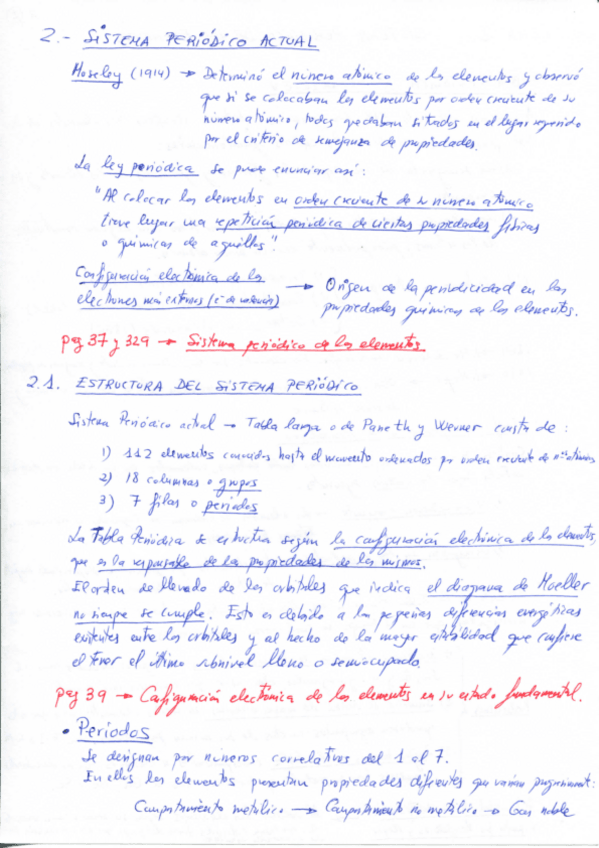 2.- SISTEMA PERIÓDICO ACTUAL
Moseley (1914) → Determinó el número atómico de los elementos y observó
que si se colocaban los elementos por orden creciente de su
número atómico, todos quedaban situados en el lugar requerido
por el criterio de semejanza de propiedades.
La ley periódica se puede enunciar así:
"Al colocar los elementos en orden creciente de su número atómico
tiene lugar una repetición periódica de ciertas propiedades físicas
o químicas de aquellos".
Configuración electrónica de los
electrones más externos (e⁻ de valencia) → Origen de la periodicidad en las
propiedades químicas de los elementos.
pag 37 y 329 → Sistema periódico de los elementos
2.1. ESTRUCTURA DEL SISTEMA PERIÓDICO
Sistema Periódico actual → Tabla larga o de Paneth y Werner consta de:
1) 112 elementos conocidos hasta el momento ordenados por orden creciente de nºs atómicos
2) 18 columnas o grupos
3) 7 filas o periodos
La Tabla Periódica se estructura según la configuración electrónica de los elementos,
que es la responsable de las propiedades de los mismos.
El orden de llenado de los orbitales que indica el diagrama de Moeller
no siempre se cumple. Esto es debido a las pequeñas diferencias energéticas
existentes entre los orbitales y al hecho de la mayor estabilidad que confiere
el tener el último subnivel lleno o semiocupado.
pag 39 → Configuración electrónica de los elementos en su estado fundamental.
• Períodos
Se designan por números correlativos del 1 al 7.
En ellos los elementos presentan propiedades diferentes que varían progresivamente:
Comportamiento metálico → Comportamiento no metálico → Gas noble